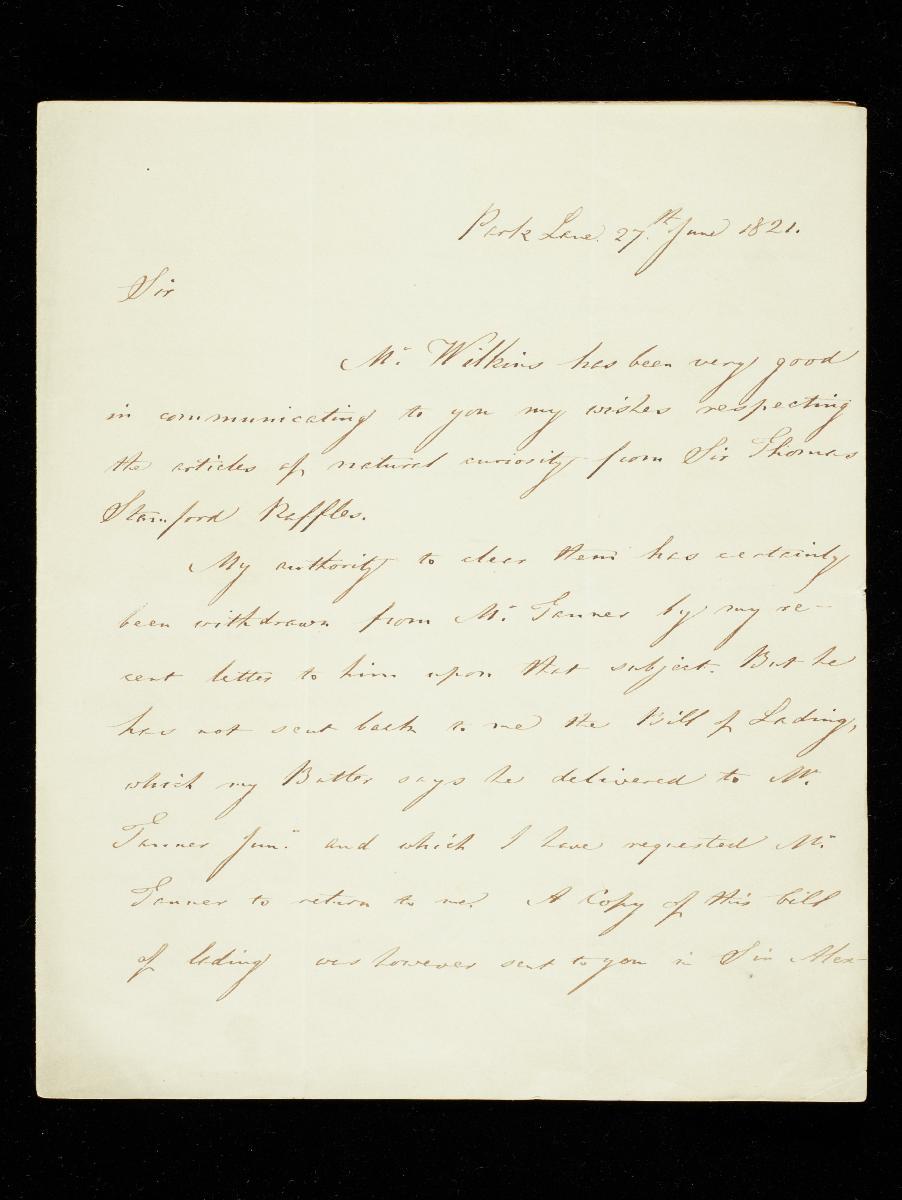 Park Lane. 27.th June 1821.
Sir
Mr. Wilkins has been very good
in communicating to you my wishes respecting
the articles of natural curiosity from Sir Thomas
Stamford Raffles.
My authority to clear them has certainly
been withdrawn from Mr. Tanner by my re-
cent letter to him upon that subject. But he
has not sent back to me the Bill of Lading,
which my Butler says he delivered to Mr.
Tanner Junr. and which I have requested Mr.
Tanner to return to me. A Copy of this bill
of lading was however sent to you in Sir Alex-